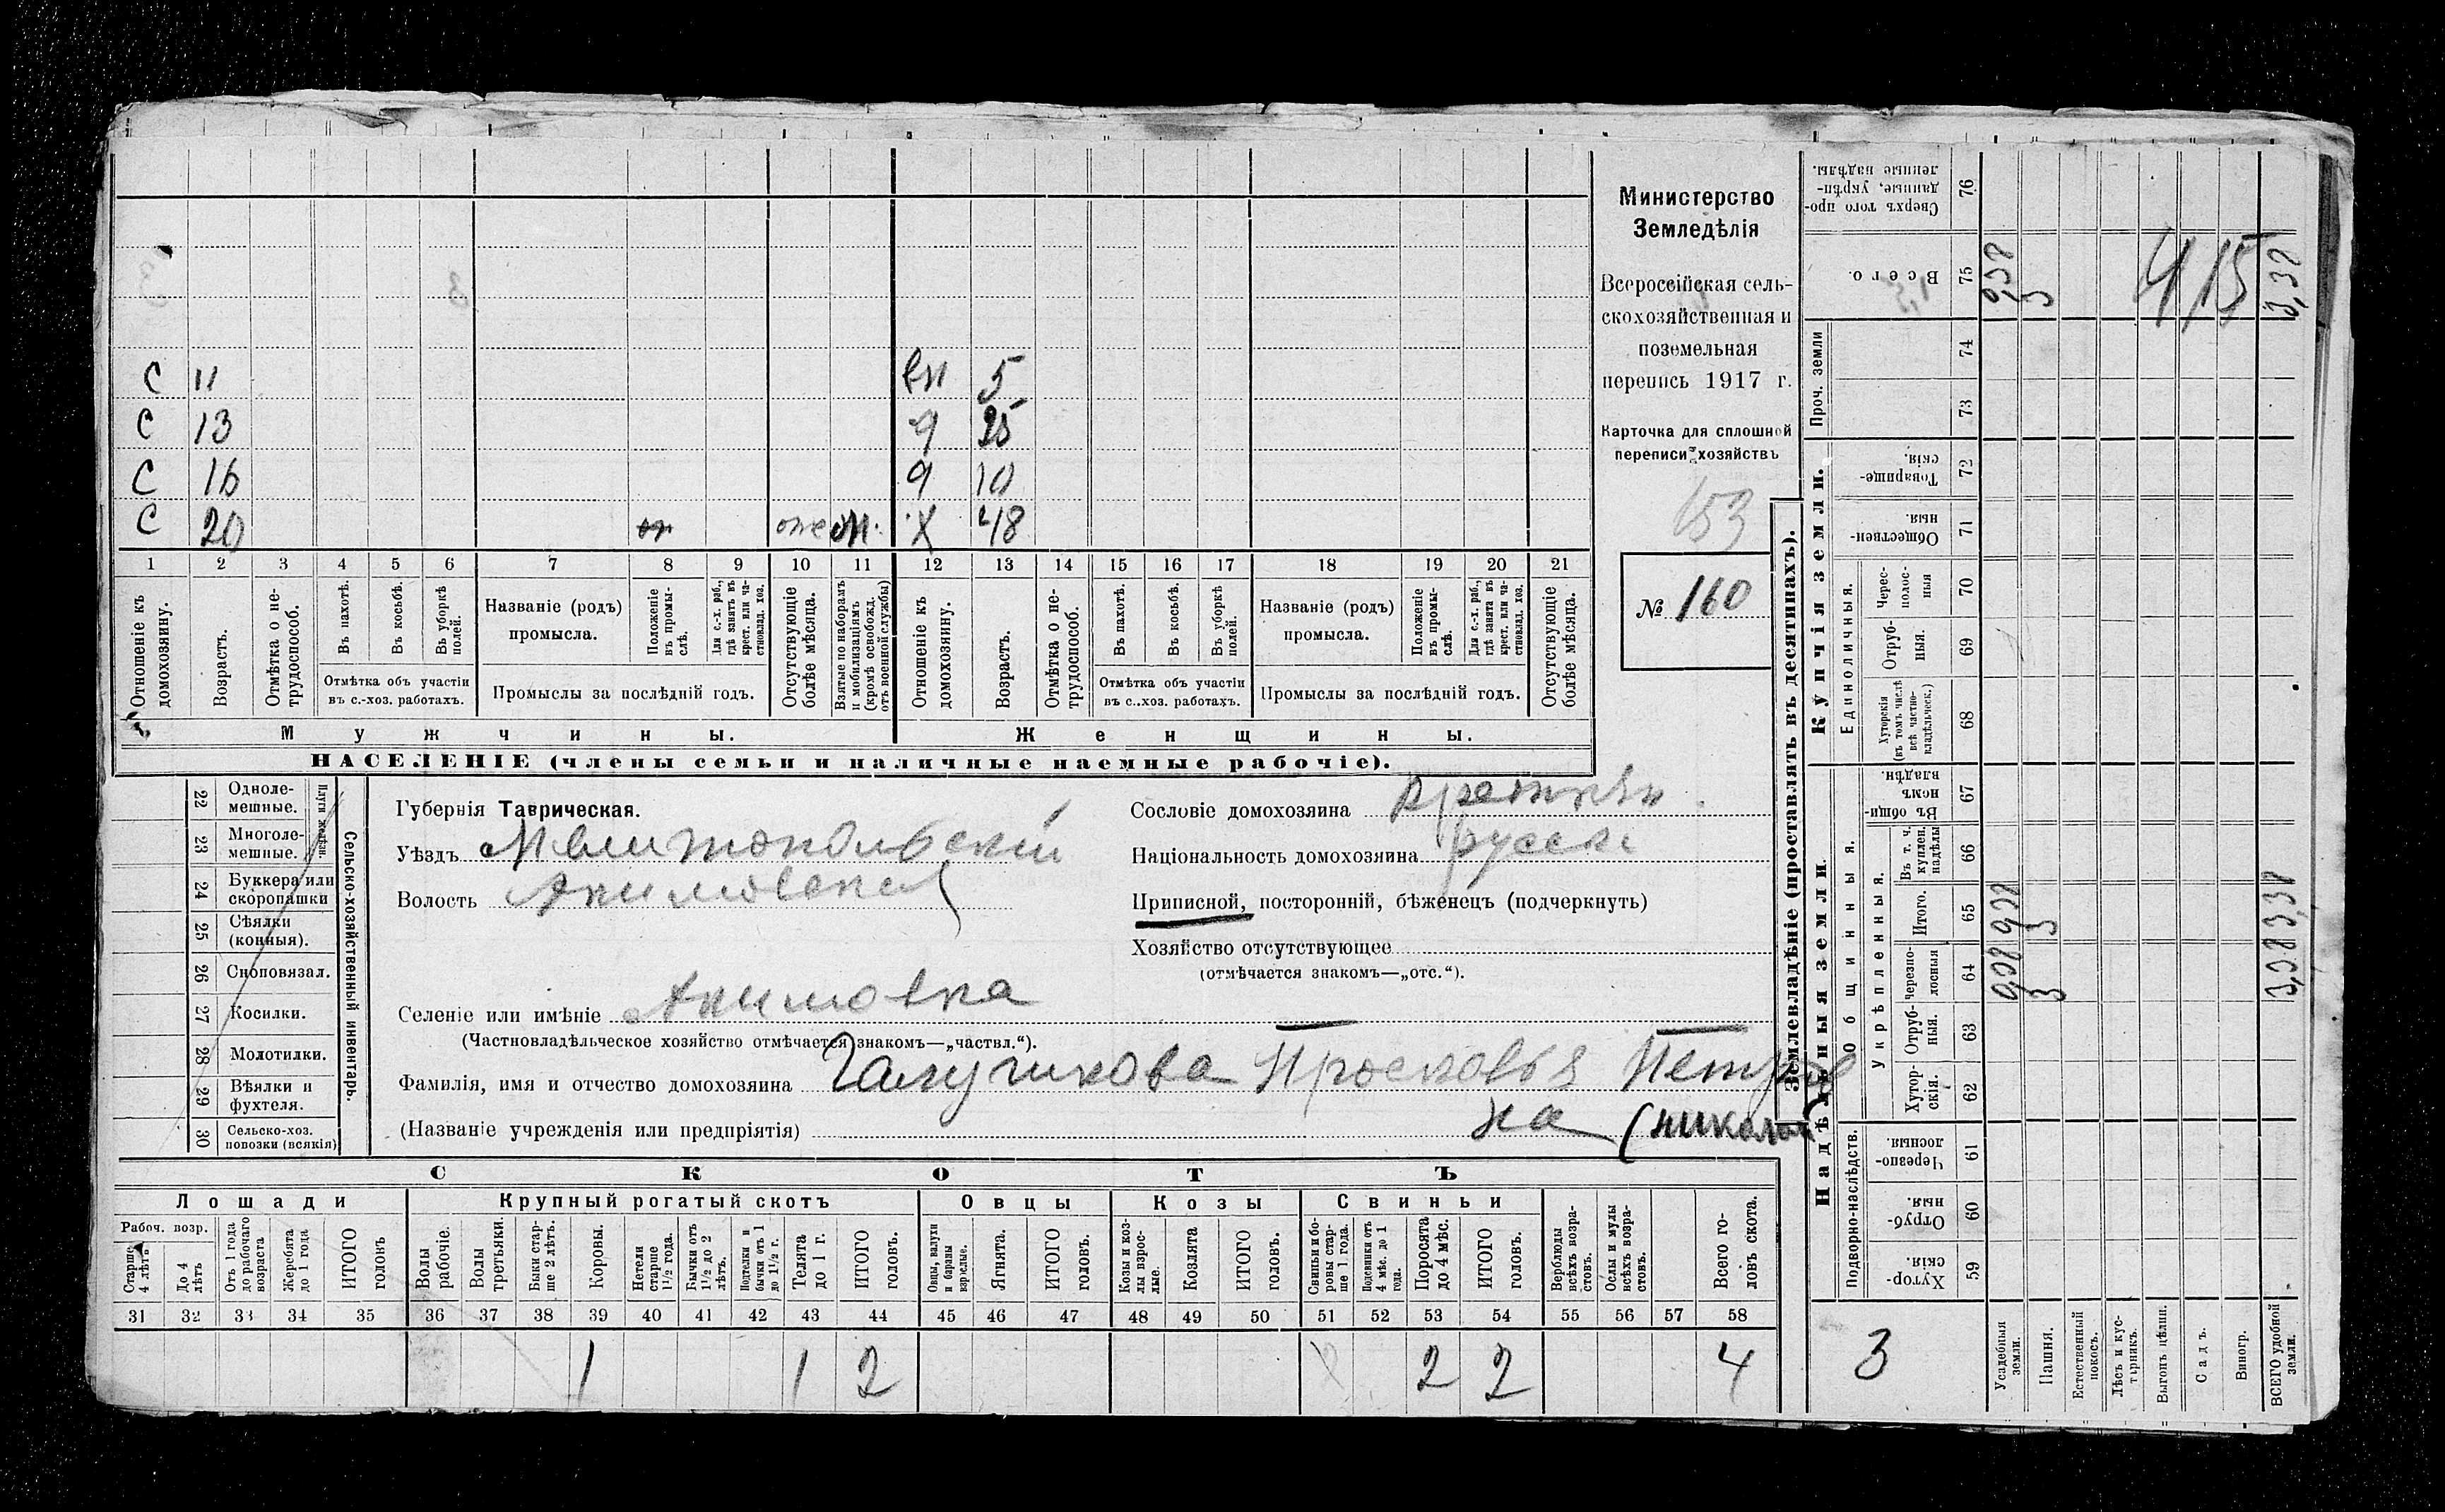 Министерство
Земледѣлія
Всероссійская сель-
скохозяйственная и
поземельная
перепись 1917 г.
Карточка для сплошной
переписи хозяйствъ
153
№ 160
С 11 вн 5
С 13 9 25
С 16 9 10
С 20 Х 48
1 2 3 4 5 6 7 8 9 10 11 12 13 14 15 16 17 18 19 20 21
Отношеніе къ домохозяину.
Возрастъ.
Отмѣтка о не-трудоспособ.
Въ пахотѣ.
Въ косьбѣ.
Въ уборкѣ полей.
Отмѣтка объ участіи
въ с.-хоз. работахъ.
Названіе (родъ)
промысла.
Положеніе въ промы-слѣ.
Для с.-х. раб., гдѣ занятъ въ крест. или ча-стновлад. хоз.
Промыслы за послѣдній годъ.
Отсутствующіе болѣе мѣсяца.
Взятые по наборамъ и мобилизаціямъ (кромѣ освобожд. отъ военной службы)
Отношеніе къ домохозяину.
Возрастъ.
Отмѣтка о не-трудоспособ.
Въ пахотѣ.
Въ косьбѣ.
Въ уборкѣ полей.
Отмѣтка объ участіи
въ с.-хоз. работахъ.
Названіе (родъ)
промысла.
Положеніе въ промы-слѣ.
Для с.-х. раб., гдѣ занята въ крест. или ча-стновлад. хоз.
Промыслы за послѣдній годъ.
Отсутствующіе болѣе мѣсяца.
Мужчины.
Женщины.
НАСЕЛЕНІЕ (члены семьи и наличные наемные рабочіе).
22 Одноле-мешные.
23 Многоле-мешные.
24 Буккера или скоропашки
25 Сѣялки (конныя).
26 Сноповязал.
27 Косилки.
28 Молотилки.
29 Вѣялки и фухтеля.
30 Сельско-хоз. повозки (всякія)
Сельско-хозяйственный инвентарь.
Губернія Таврическая.
Уѣздъ Мелитопольскій
Волость Акимовская
Селеніе или имѣніе Акимовка
(Частновладѣльческое хозяйство отмѣчается знакомъ—„частвл.“).
Фамилія, имя и отчество домохозяина Галушкова Просковья Петров
на (Николай
(Названіе учрежденія или предпріятія)
Сословіе домохозяина крестьян
Національность домохозяина русск
Приписной, посторонній, бѣженецъ (подчеркнуть)
Хозяйство отсутствующее
(отмѣчается знакомъ—„отс.“).
СКОТЪ
Лошади
Крупный рогатый скотъ
Овцы
Козы
Свиньи
Рабоч. возр.
Старше 4 лѣтъ
До 4 лѣтъ
Отъ 1 года до рабочаго возраста
Жеребята до 1 года
ИТОГО головъ
Волы рабочіе.
Волы третьяки.
Быки стар-ше 2 лѣтъ.
Коровы.
Нетели старше 1½ года.
Бычки отъ 1½ до 2 лѣтъ.
Подтелки и бычки отъ 1 до 1½ г.
Телята до 1 г.
ИТОГО головъ.
Овцы, валухи и бараны взрослые.
Ягнята.
ИТОГО головъ.
Козы и коз-лы взрос-лые.
Козлята
ИТОГО головъ.
Свиньи и бо-ровы стар-ше 1 года.
Подсвинки отъ 4 мѣс. до 1 года.
Поросята до 4 мѣс.
ИТОГО головъ.
Верблюды всѣхъ возра-стовъ.
Ослы и мулы всѣхъ возра-стовъ.
Всего го-ловъ скота.
31 32 33 34 35 36 37 38 39 40 41 42 43 44 45 46 47 48 49 50 51 52 53 54 55 56 57 58
1 1 2 2 2 4
Землевладѣніе (проставлять въ десятинахъ).
Надѣльныя земли.
Купчія земли.
Проч. земли
Подворно-наслѣдств.
Общинныя.
Укрѣпленныя.
Единоличныя.
59 Хутор-скія.
60 Отруб-ныя.
61 Черезпо-лосныя.
62 Хутор-скія.
63 Отруб-ныя.
64 Черезпо-лосныя
65 Итого.
66 Въ т. ч. куплен. надѣлы
67 Въ общи-номъ владѣн.
68 Хуторскія (въ томъ числѣ всѣ частно-владѣльческ.)
69 Отруб-ныя.
70 Черес-полос-ныя
71 Обществен-ныя.
72 Товарище-скія.
73
74
75 Всего.
76 Сверхъ того про-данные, укрѣп-ленные надѣлы.
3
Усадебныя земли.
Пашня.
Естественный покосъ.
Лѣсъ и кус-тарникъ.
Выгонъ цѣлин.
Садъ.
Виногр.
ВСЕГО удобной земли.
3 3 3
415